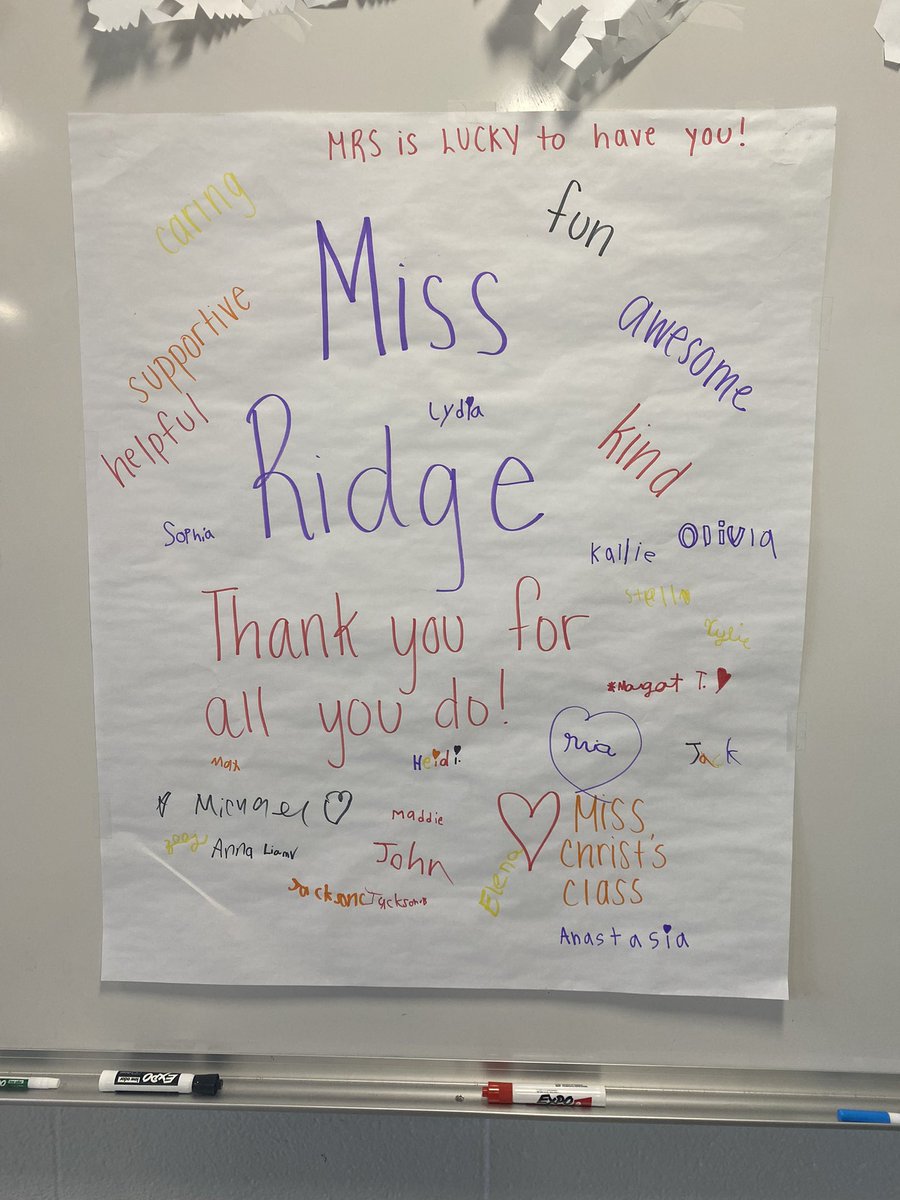 MRS is LUCKY to have you!
caring
fun
Miss
supportive
awesome
helpful
Lydia
Ridge
kind
Sophia
Kallie
Olivia
Stella
Kylie
Thank you for
all you do!
*Margot T.
Max
Heidi
mia
Jack
Michael
Maddie
Miss.
Christ's
class
Zoey
Anna
Liam V
John
Elena
Jackson C
Jackson B
Anastasia
EXPO
EXPO